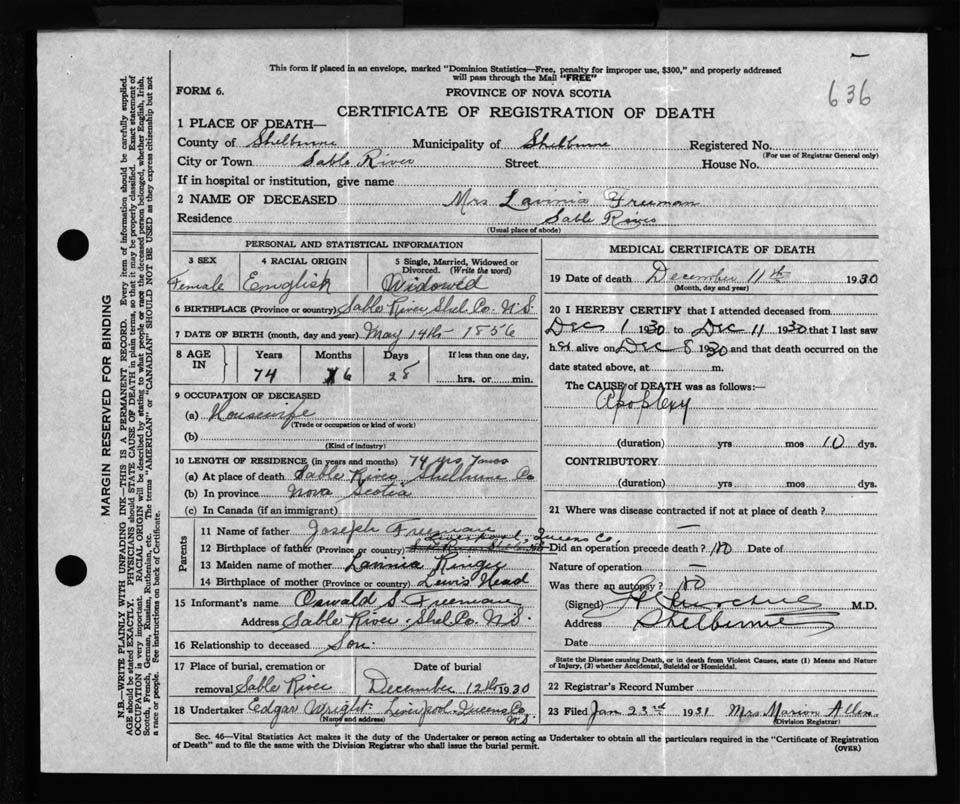 636
This form if placed in an envelope, marked "Dominion Statistics—Free, penalty for improper use, $300," and properly addressed
will pass through the Mail "FREE"
FORM 6.
PROVINCE OF NOVA SCOTIA
CERTIFICATE OF REGISTRATION OF DEATH
1 PLACE OF DEATH—
County of Shelburne Municipality of Shelburne Registered No.
(For use of Registrar General only)
City or Town Sable River Street House No.
If in hospital or institution, give name
2 NAME OF DECEASED Mrs Lavinia Freeman
Residence Sable River
(Usual place of abode)
PERSONAL AND STATISTICAL INFORMATION
3 SEX 4 RACIAL ORIGIN 5 Single, Married, Widowed or
Divorced. (Write the word)
Female English Widowed
6 BIRTHPLACE (Province or country) Sable River Shel. Co. N.S.
7 DATE OF BIRTH (month, day and year) May 14th 1856
8 AGE IN Years Months Days If less than one day,
74 6 28 hrs. or min.
9 OCCUPATION OF DECEASED
(a) Housewife
(Trade or occupation or kind of work)
(b)
(Kind of industry)
10 LENGTH OF RESIDENCE (in years and months) 74 yrs 7 mos
(a) At place of death Sable River Shelburne Co
(b) In province Nova Scotia
(c) In Canada (if an immigrant)
Parents
11 Name of father Joseph Freeman
Liverpool, Queens Co.
12 Birthplace of father (Province or country)
13 Maiden name of mother Ringer
14 Birthplace of mother (Province or country) Lewis Head
15 Informant's name Oswald S. Freeman
Address Sable River Shel. Co. N.S.
16 Relationship to deceased Son
17 Place of burial, cremation or Date of burial
removal Sable River December 12th 1930
18 Undertaker Edgar Wright Liverpool Queens Co.
N.S.
(Name and address)
MEDICAL CERTIFICATE OF DEATH
19 Date of death December 11th 1930
(Month, day and year)
20 I HEREBY CERTIFY that I attended deceased from
Dec 1 1930 to Dec 11 1930 that I last saw
her alive on Dec 8 1930 and that death occurred on the
date stated above, at m.
The CAUSE of DEATH was as follows:—
Apoplexy
(duration) yrs mos 10 dys.
CONTRIBUTORY
(duration) yrs mos dys.
21 Where was disease contracted if not at place of death?
Did an operation precede death? no Date of
Nature of operation —
Was there an autopsy? no
(Signed) M.D.
Address Shelburne
Date
State the Disease causing Death, or in death from Violent Causes, state (1) Means and Nature
of Injury, (2) whether Accidental, Suicidal or Homicidal.
22 Registrar's Record Number
23 Filed Jan 23rd 1931 Mrs. Marion Allen
(Division Registrar)
Sec. 46—Vital Statistics Act makes it the duty of the Undertaker or person acting as Undertaker to obtain all the particulars required in the "Certificate of Registration
of Death" and to file the same with the Division Registrar who shall issue the burial permit.
(OVER)
MARGIN RESERVED FOR BINDING
N.B.—WRITE PLAINLY WITH UNFADING INK—THIS IS A PERMANENT RECORD. Every item of information should be carefully supplied.
AGE should be stated EXACTLY. PHYSICIANS should STATE CAUSE OF DEATH in plain terms, so that it may be properly classified. Exact statement of
OCCUPATION is very important. RACIAL ORIGIN will be described by stating to what people or race the deceased person belonged, whether English, Irish,
Scotch, French, German, Russian, Ruthenian, etc. The terms "AMERICAN" or "CANADIAN" SHOULD NOT BE USED as they express citizenship but not
a race or people. See instructions on back of Certificate.